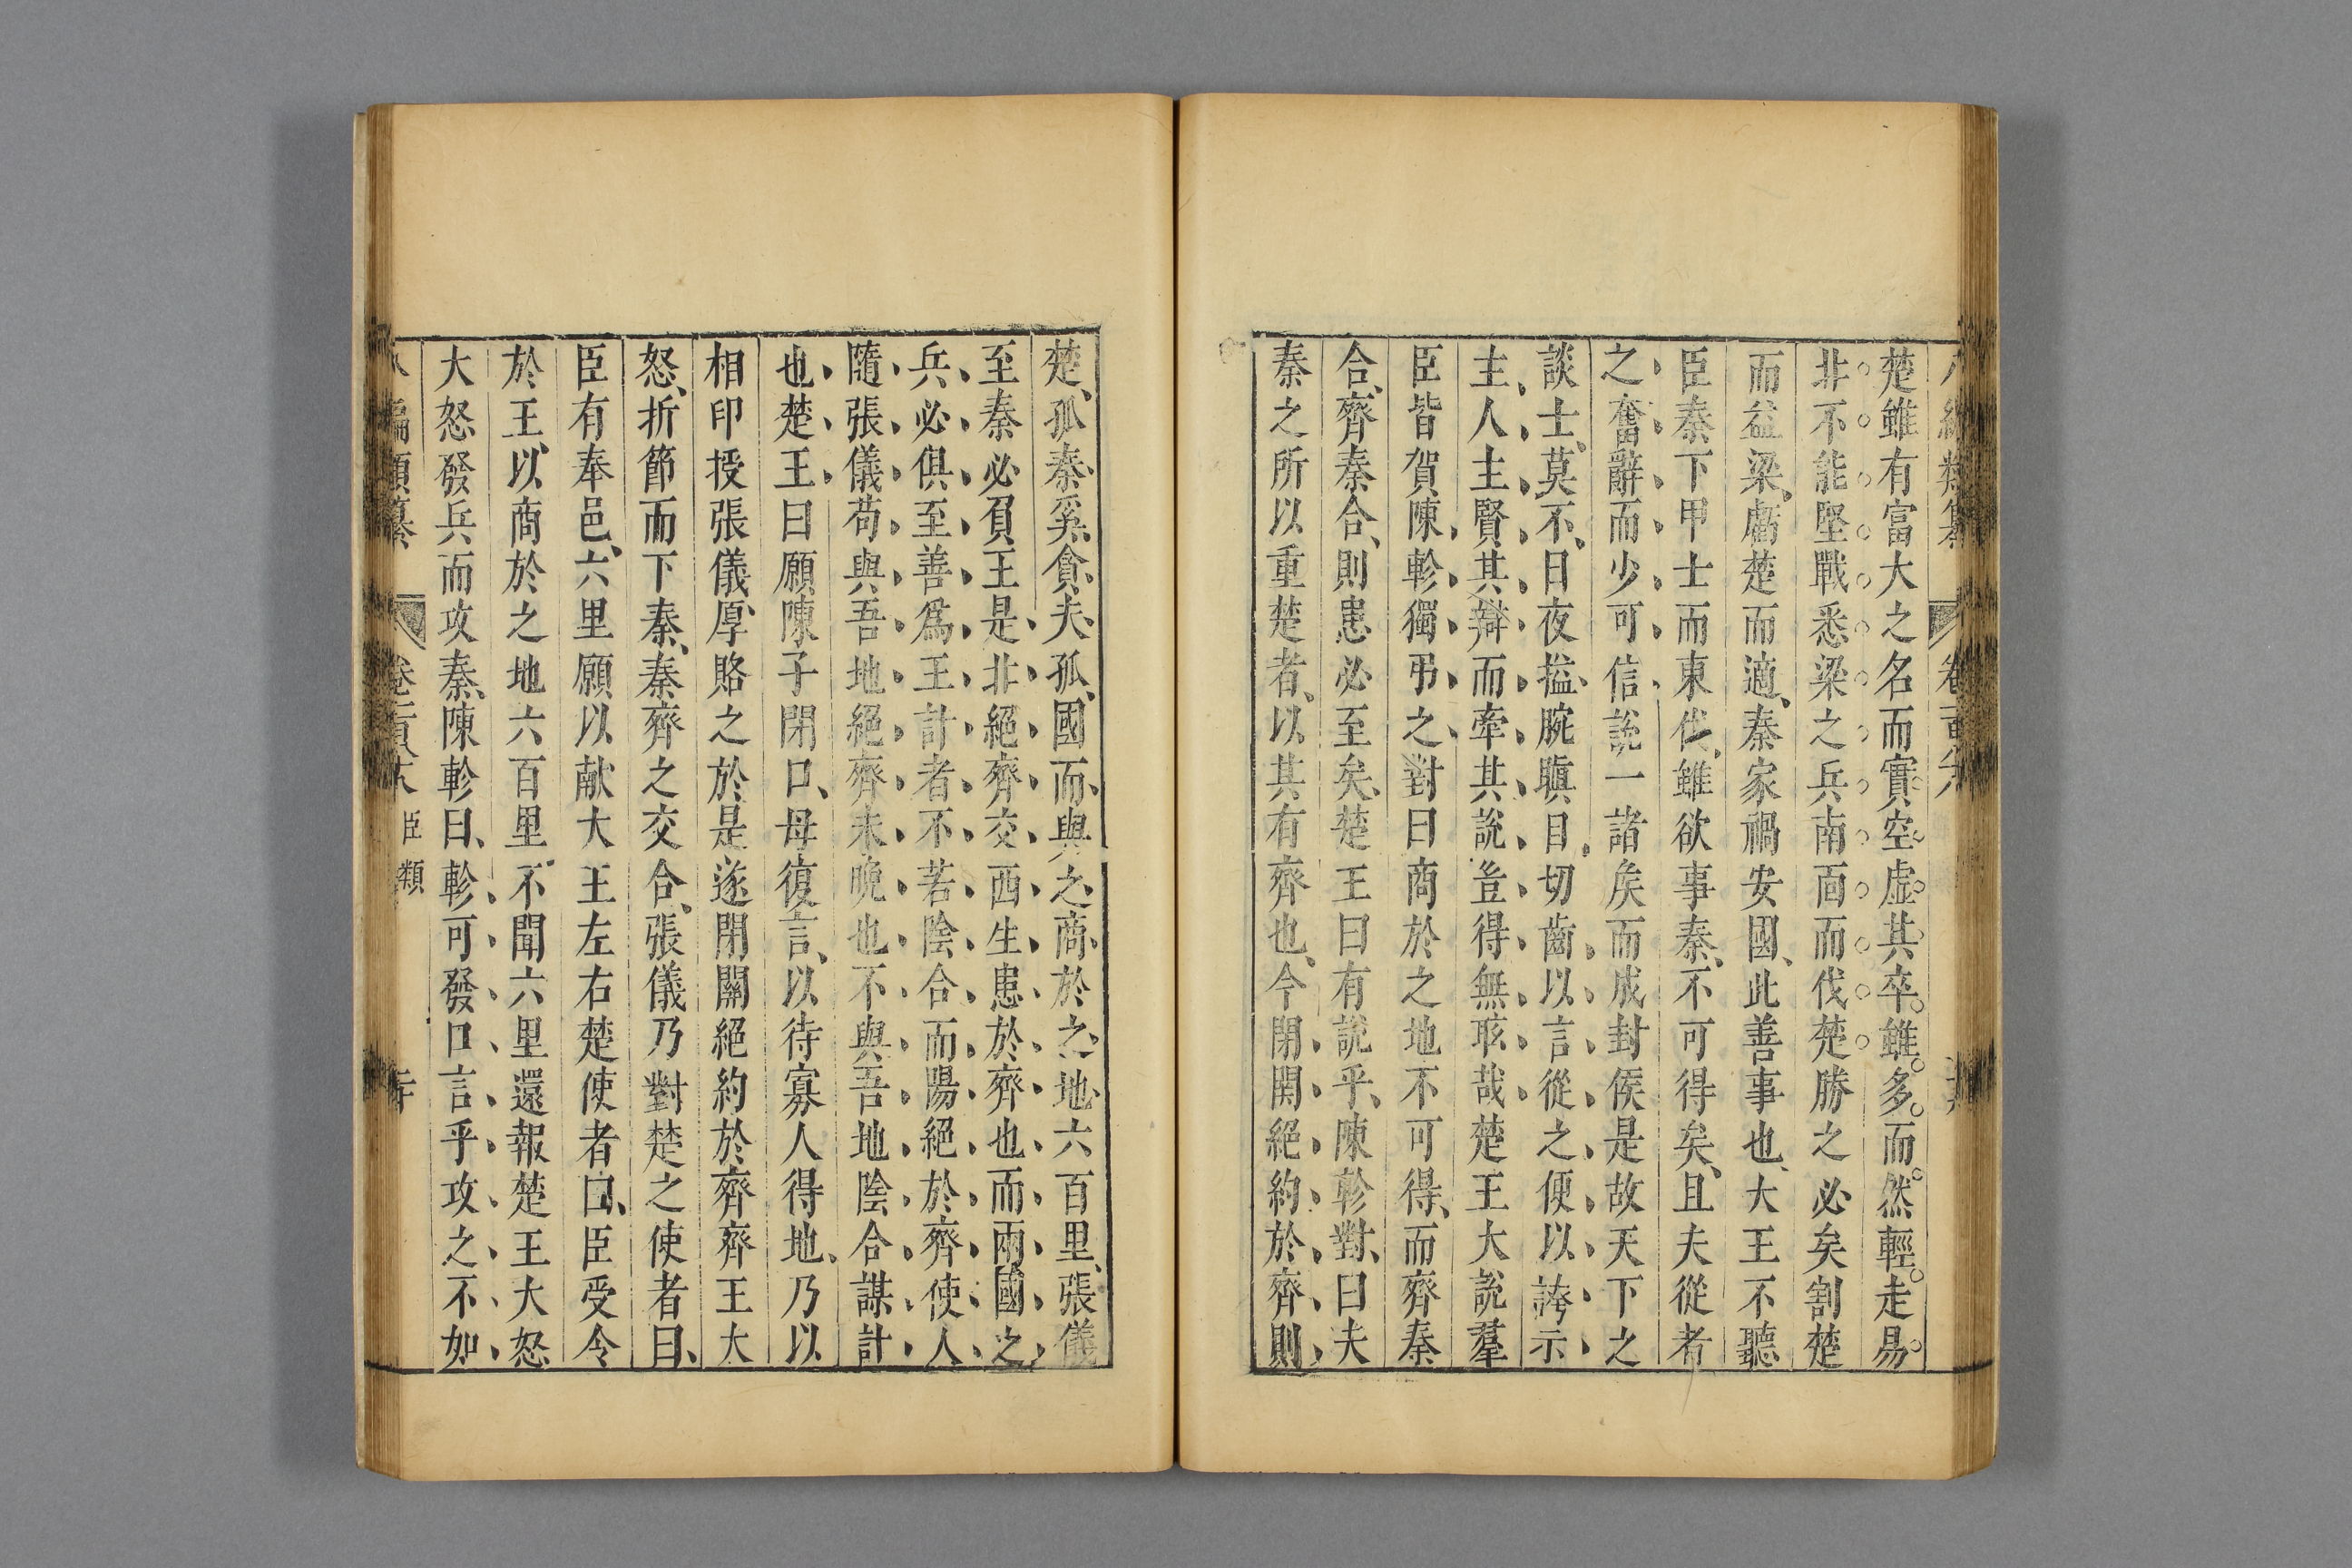 楚雖有富大之名而實空虛其卒雖多而然輕走易
北不能堅戰悉梁之兵南面而伐楚勝之必矣割楚
而益梁虧楚而適秦家禍安國此善事也大王不聽
臣秦下甲士而東伐雖欲事秦不可得矣且夫從者
之奮辭而少可信說一諸矦而成封侯是故天下之
談士莫不日夜搤腕瞋目切齒以言從之便以誇示
主人主賢其辯而牽其說豈得無眩哉楚王大說羣
臣皆賀陳軫獨弔之對曰商於之地不可得而齊秦
合齊秦合則患必至矣楚王曰有說乎陳軫對曰夫
秦之所以重楚者以其有齊也今閉関絕約於齊則
楚孤秦奚貪夫孤國而與之商於之地六百里張儀
至秦必負王是北絕齊交西生患於齊也而兩國之
兵必俱至善爲王計者不若陰合而陽絕於齊使人
隨張儀苟與吾地絕齊未晚也不與吾地陰合謀計
也楚王曰願陳子閉口毋復言以待寡人得地乃以
相印授張儀厚賂之於是遂閉關絕約於齊齊王大
怒折節而下秦秦齊之交合張儀乃對楚之使者曰
臣有奉邑六里願以献大王左右楚使者曰臣受令
於王以商於之地六百里不聞六里還報楚王大怒
大怒發兵而攻秦陳軫曰軫可發口言乎攻之不如
編類纂 臣類